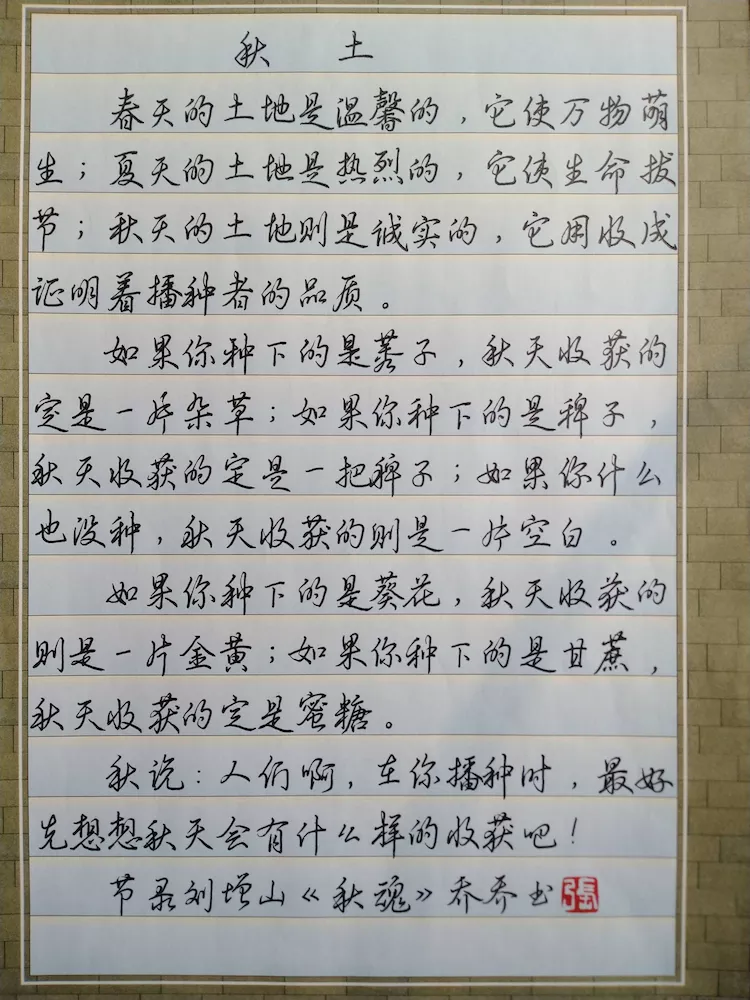 秋 土
春天的土地是温馨的，它使万物萌
生；夏天的土地是热烈的，它使生命拔
节；秋天的土地则是诚实的，它用收成
证明着播种者的品质。
如果你种下的是莠子，秋天收获的
定是一片杂草；如果你种下的是稗子，
秋天收获的定是一把稗子；如果你什么
也没种，秋天收获的则是一片空白。
如果你种下的是葵花，秋天收获的
则是一片金黄；如果你种下的是甘蔗，
秋天收获的定是蜜糖。
秋说：人们啊，在你播种时，最好
先想想秋天会有什么样的收获吧！
节录刘增山《秋魂》乔乔书 張